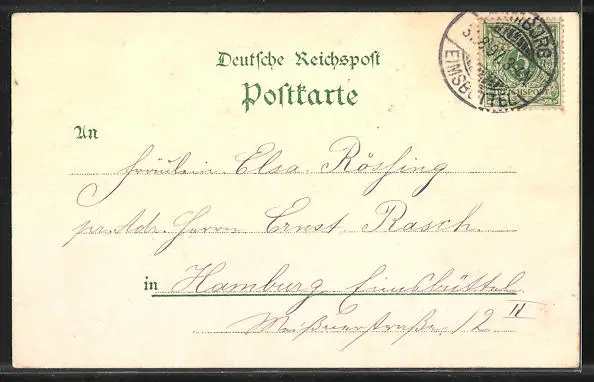 Deutsche Reichspost
Postkarte
HAMBURG
EIMSBÜTTEL
REICHSPOST
An
Fräulein Elsa Rössing
pr. Adr. Herrn Ernst Rasch.
in Hamburg Eimsbüttel
Meißnerstraße 12 II